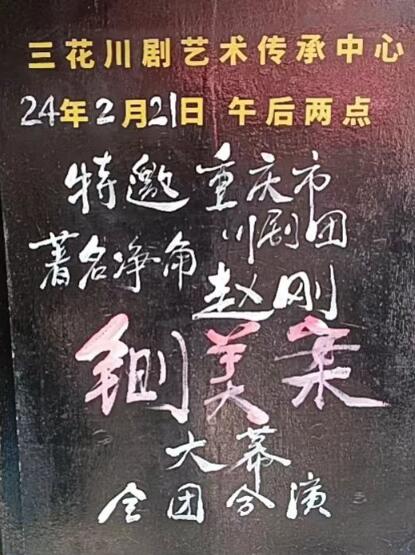 三花川剧艺术传承中心
24年2月21日 午后两点
特邀重庆市
川剧团
著名净角
赵刚
铡美案
大幕
全团合演